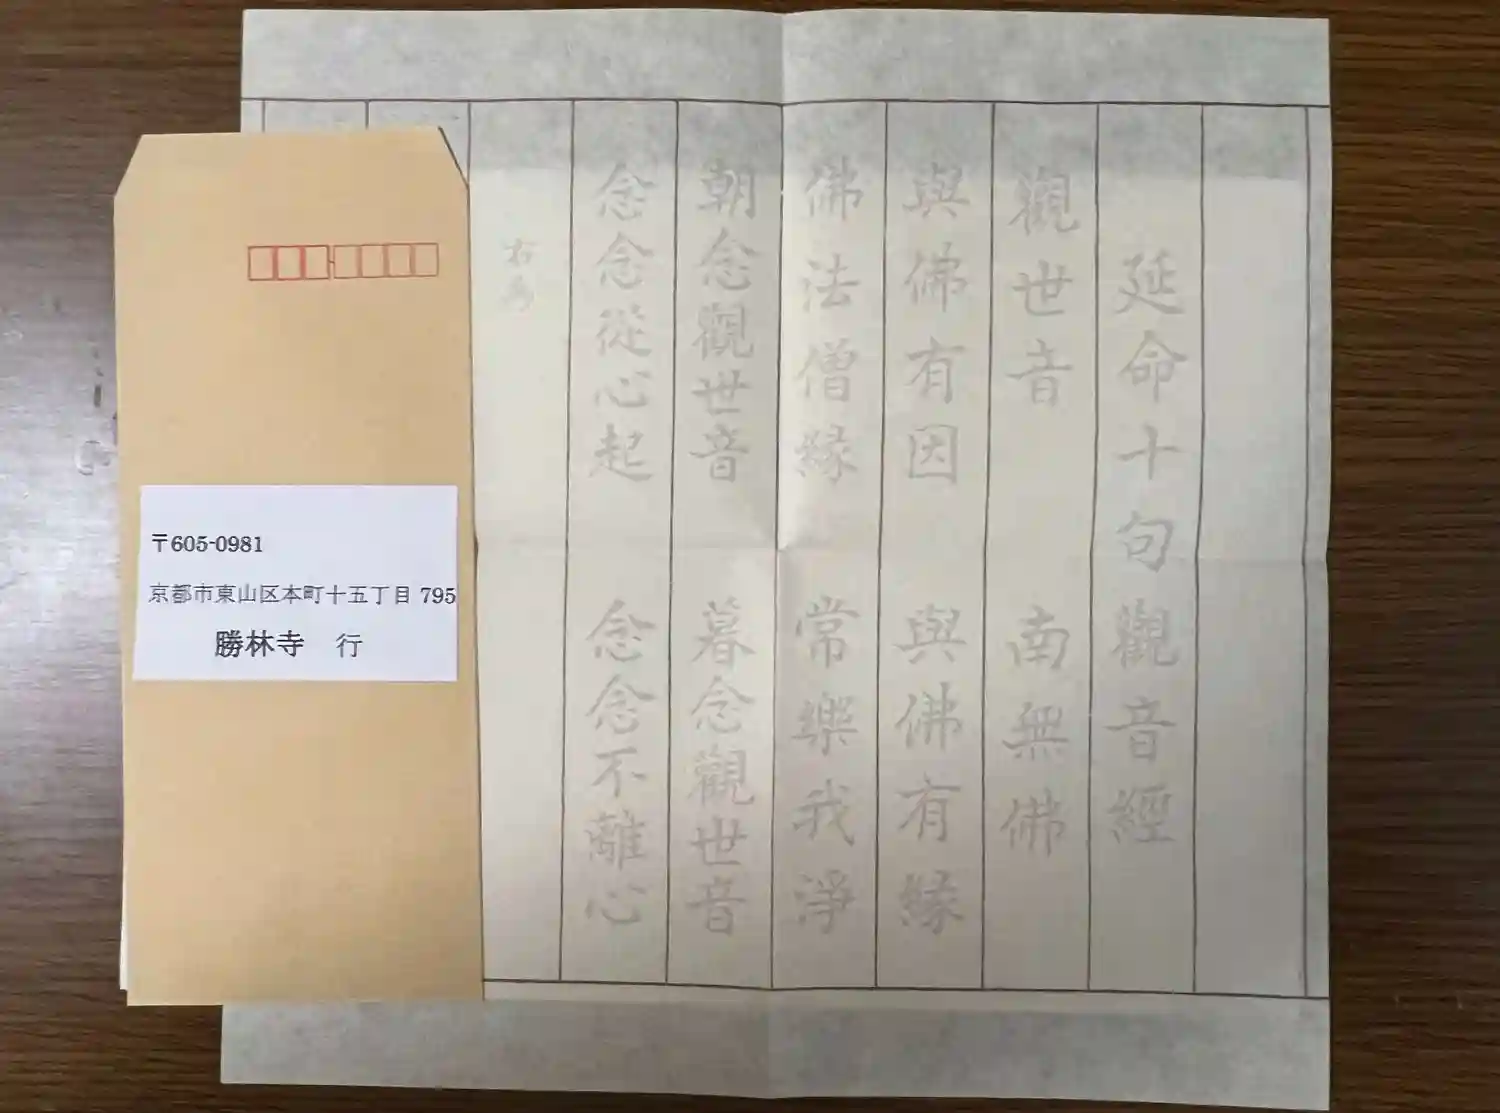 〒605-0981
京都市東山区本町十五丁目 795
勝林寺　行
延命十句觀音經
觀世音　南無佛
與佛有因　與佛有縁
佛法僧縁　常樂我淨
朝念觀世音　暮念觀世音
念念從心起　念念不離心
右為